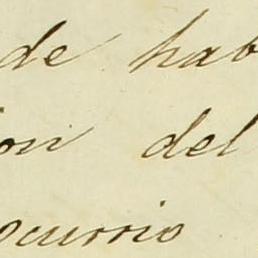 de hab
ion del
ocurrio